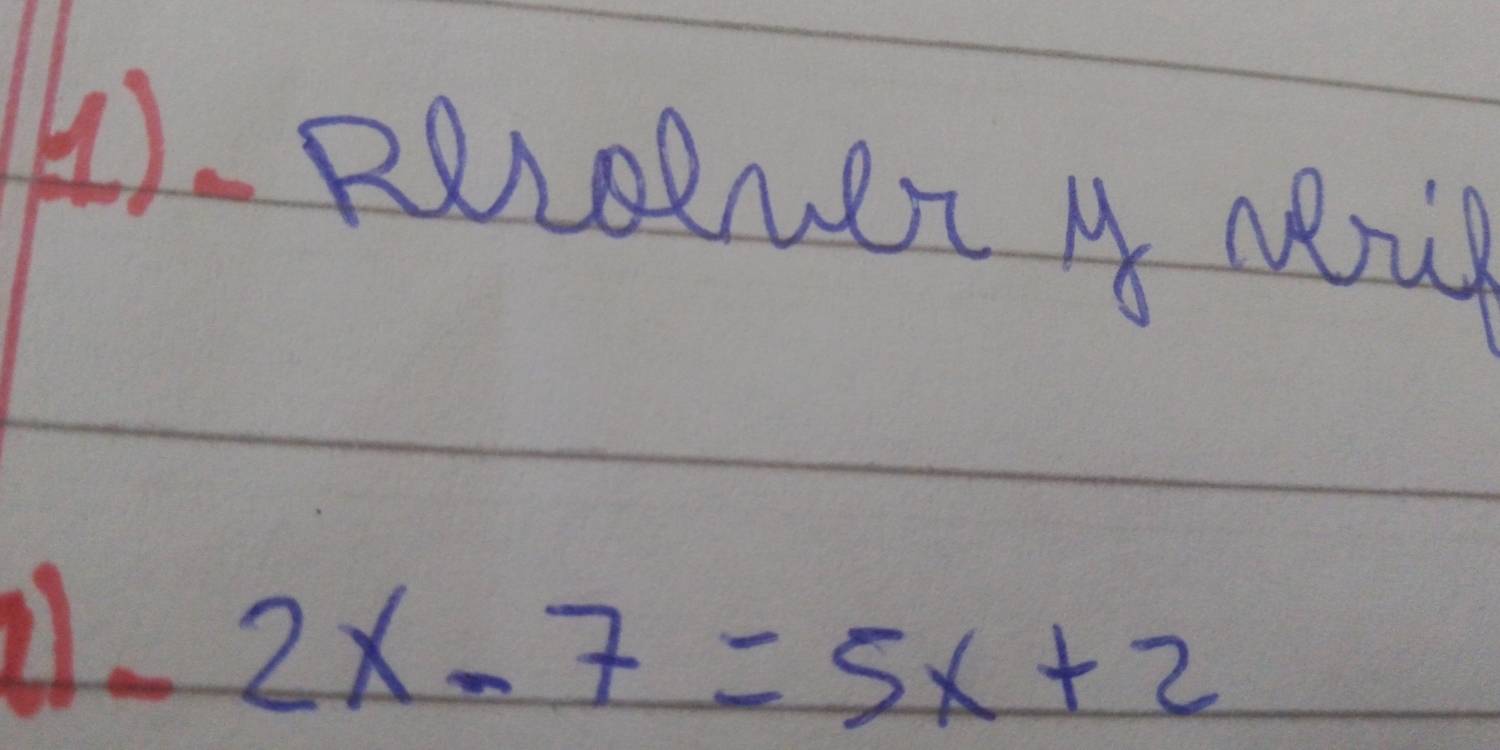 1)- Resolver y verif
2x - 7 = 5x + 2